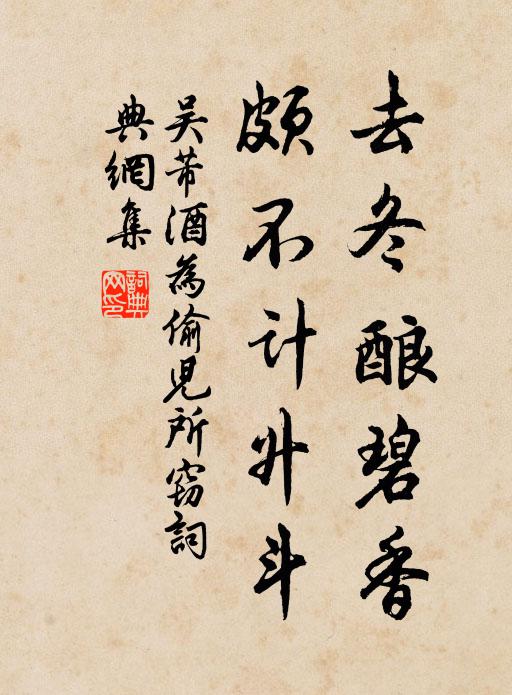 去冬酿碧香
颇不计升斗
吴芾酒為偷児所窃詞
典網集
詞典网印